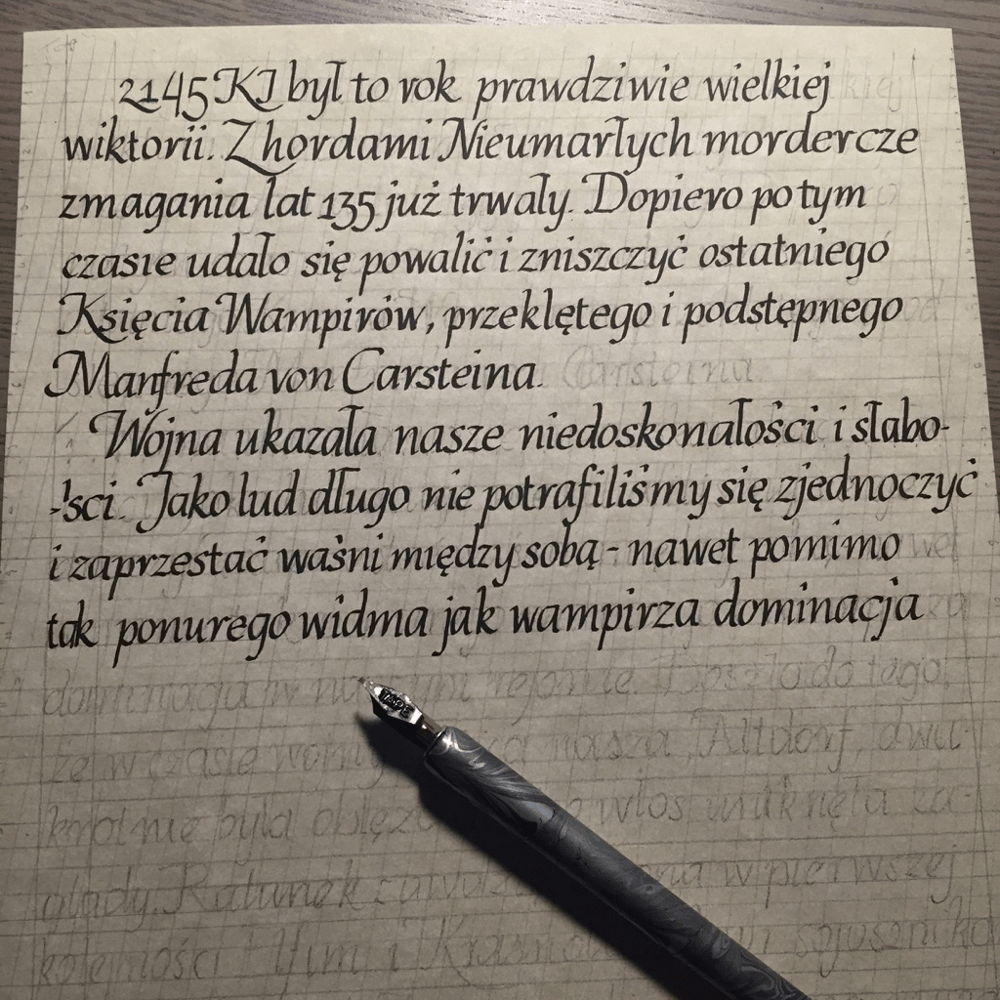 2145 KI był to rok prawdziwie wielkiej
wiktorii. Z hordami Nieumarłych mordercze
zmagania lat 135 już trwały. Dopiero po tym
czasie udało się powalić i zniszczyć ostatniego
Księcia Wampirów, przeklętego i podstępnego
Manfreda von Carsteina.
Wojna ukazała nasze niedoskonałości i słabo-
-ści. Jako lud długo nie potrafiliśmy się zjednoczyć
i zaprzestać waśni między sobą - nawet pomimo
tak ponurego widma jak wampirza dominacja
dominacja w rejonie. do tego,
że w czasie wojny nasza, Altdorf, dwu-
krotnie była włos uniknęła za-
głady. Ratunek w pierwszej
kolejności i